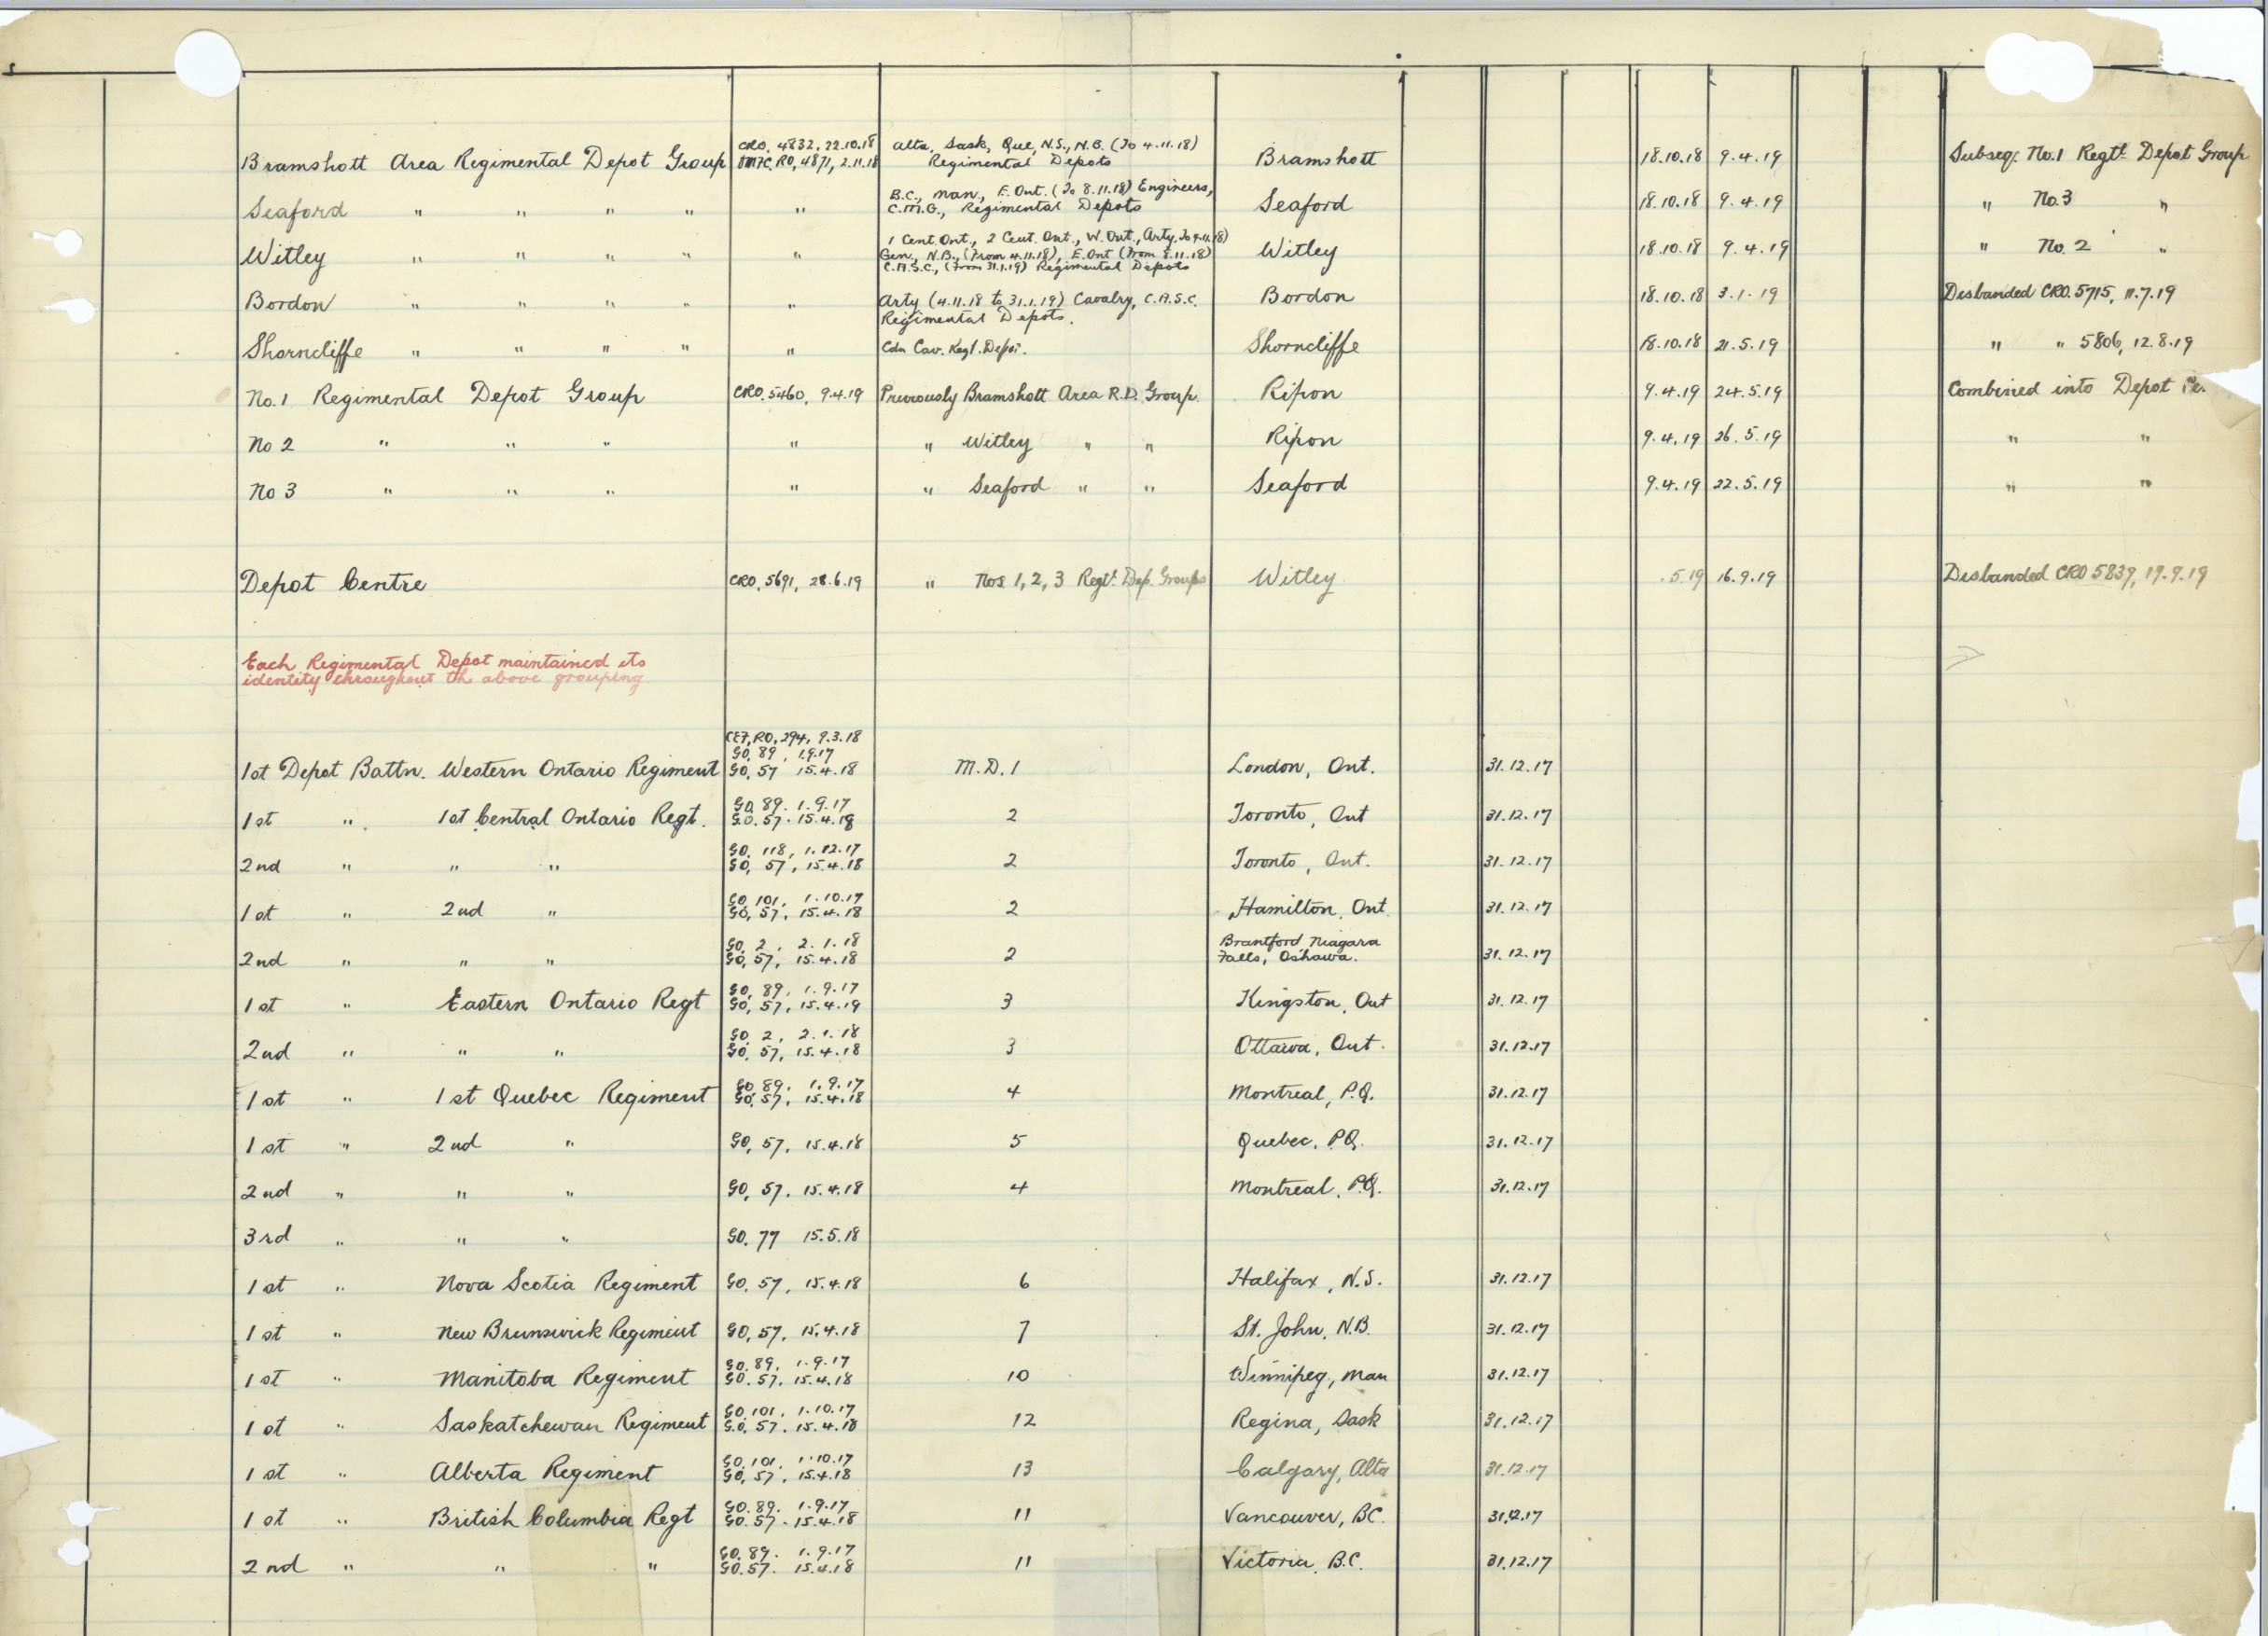 Bramshott Area Regimental Depot Group CRO, 4832, 22.10.18 OMFC. RO, 4871, 2.11.18 Alta, Sask, Que, N.S., N.B. (To 4.11.18) Regimental Depots Bramshott 18.10.18 9.4.19 Subseq. No.1 Regtl Depot Group
Seaford " " " " " B.C., Man., E. Ont. (To 8.11.18) Engineers, C.M.G., Regimental Depots Seaford 18.10.18 9.4.19 " No.3 "
Witley " " " " " 1 Cent. Ont., 2 Cent. Ont., W. Ont., Arty, To 4.11.18) Gen., N.B., (From 4.11.18), E. Ont (From 8.11.18) C.A.S.C., (From 31.1.19) Regimental Depots Witley 18.10.18 9.4.19 " No. 2 "
Bordon " " " " " Arty (4.11.18 to 31.1.19) Cavalry, C.A.S.C. Regimental Depots. Bordon 18.10.18 3.1.19 Disbanded CRO. 5715, 11.7.19
Shorncliffe " " " " " Cdn Cav. Regt. Depot. Shorncliffe 18.10.18 21.5.19 " " 5806, 12.8.19
No.1 Regimental Depot Group CRO. 5460, 9.4.19 Previously Bramshott Area R.D. Group. Ripon 9.4.19 24.5.19 Combined into Depot
No 2 " " " " " Witley " " Ripon 9.4.19 26.5.19 " "
No 3 " " " " " Seaford " " Seaford 9.4.19 22.5.19 " "
Depot Centre CRO, 5691, 28.6.19 " Nos 1, 2, 3 Regtl. Dep. Groups Witley .5.19 16.9.19 Disbanded CRO 5839, 19.9.19
Each Regimental Depot maintained its
identity throughout th above grouping
1st Depot Battn. Western Ontario Regiment CEF, RO, 294, 9.3.18 GO, 89, 1.9.17 GO, 57 15.4.18 M.D. 1 London, Ont. 31.12.17
1st " 1st Central Ontario Regt. GO, 89. 1.9.17 G.O. 57. 15.4.18 2 Toronto, Ont 31.12.17
2nd " " " GO, 118, 1.12.17 GO, 57, 15.4.18 2 Toronto, Ont. 31.12.17
1st " 2nd " GO, 101, 1.10.17 GO, 57, 15.4.18 2 Hamilton, Ont. 31.12.17
2nd " " " GO, 2, 2.1.18 GO, 57, 15.4.18 2 Brantford, Niagara Falls, Oshawa. 31.12.17
1st " Eastern Ontario Regt GO, 89, 1.9.17 GO, 57, 15.4.19 3 Kingston, Ont 31.12.17
2nd " " " GO, 2, 2.1.18 GO, 57, 15.4.18 3 Ottawa, Ont. 31.12.17
1st " 1st Quebec Regiment GO, 89. 1.9.17 GO, 57, 15.4.18 4 Montreal, P.Q. 31.12.17
1st " 2nd " GO, 57, 15.4.18 5 Quebec, P.Q. 31.12.17
2nd " " " GO, 57. 15.4.18 4 Montreal, P.Q. 31.12.17
3rd " " " GO. 77 15.5.18
1st " Nova Scotia Regiment GO, 57, 15.4.18 6 Halifax, N.S. 31.12.17
1st " New Brunswick Regiment GO, 57, 15.4.18 7 St. John, N.B. 31.12.17
1st " Manitoba Regiment GO. 89, 1.9.17 GO. 57, 15.4.18 10 Winnipeg, Man 31.12.17
1st " Saskatchewan Regiment GO, 101, 1.10.17 G.O. 57. 15.4.18 12 Regina, Sask 31.12.17
1st " Alberta Regiment GO, 101, 1.10.17 GO, 57, 15.4.18 13 Calgary, Alta 31.12.17
1st " British Columbia Regt GO. 89. 1.9.17 GO. 57. 15.4.18 11 Vancouver, BC. 31.12.17
2nd " " " GO. 89. 1.9.17 GO. 57. 15.4.18 11 Victoria, B.C. 31.12.17